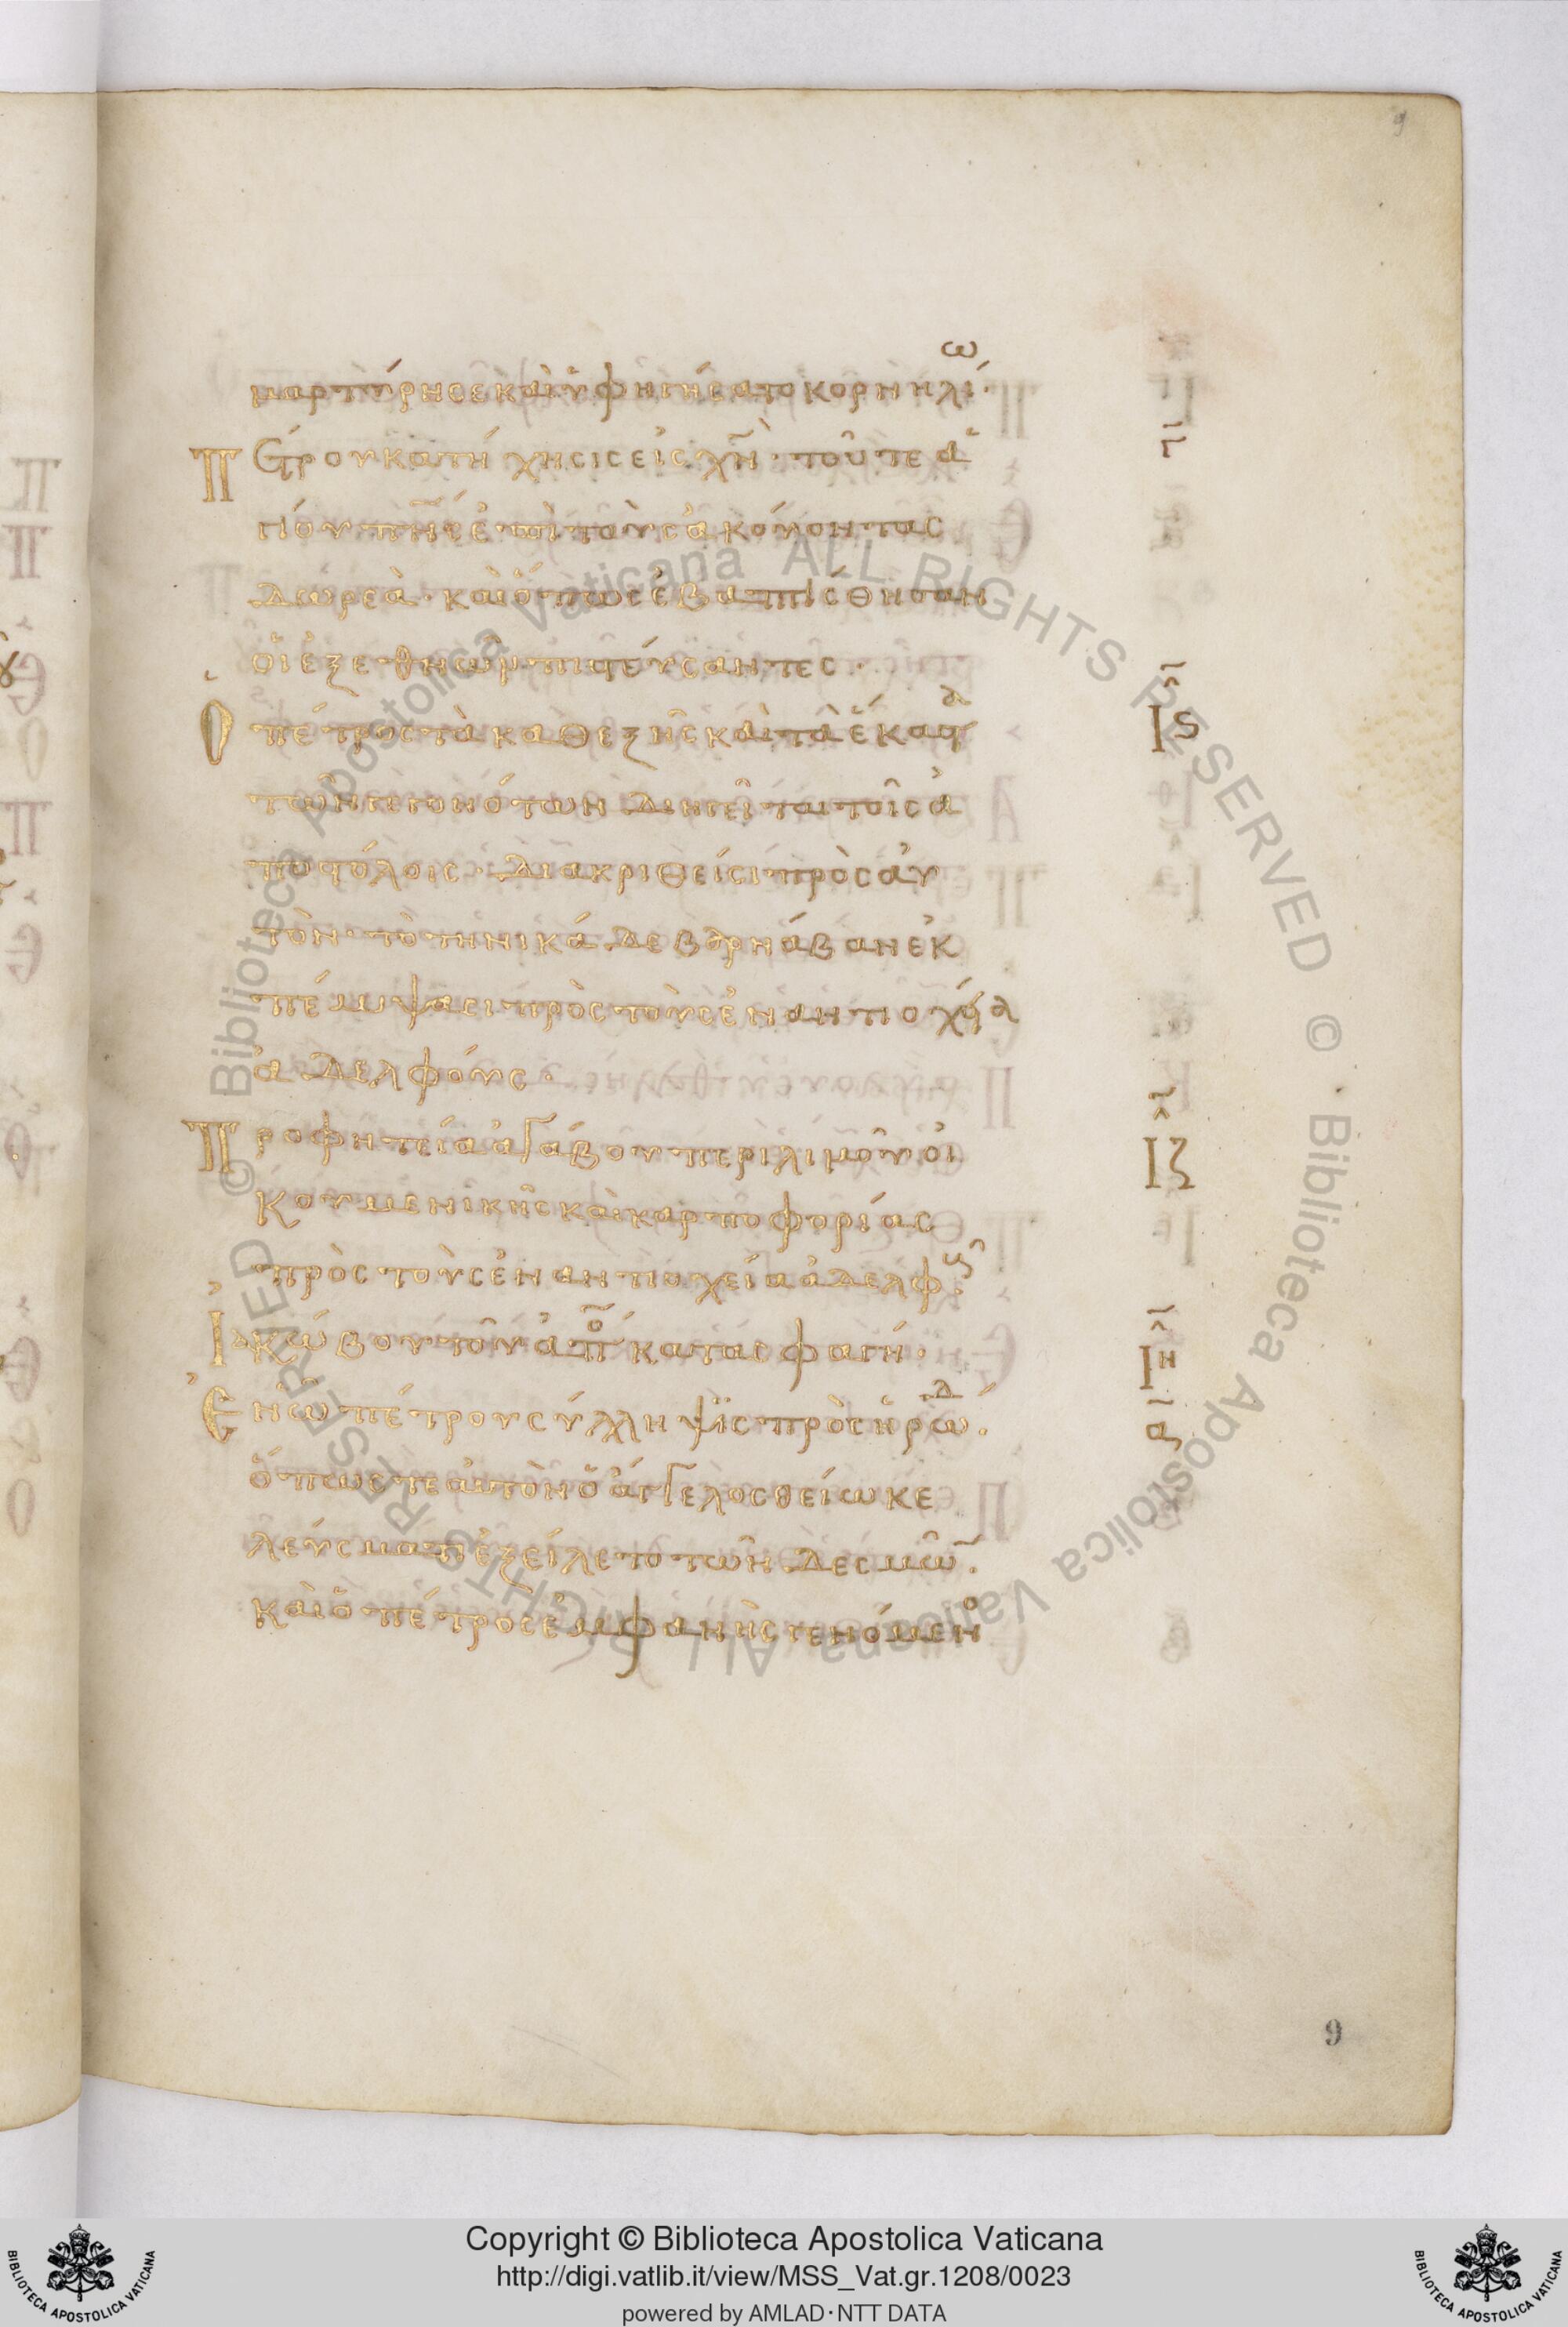 9
μαρτύρησε καὶ ὑφηγήσατο κορνηλίω·
Πέτρου κατήχησις εἰς χ̅ν̅· τοῦ τε ἁ
γίου π̅ν̅ς ἐπὶ τοὺς ἀκούοντας
δωρεὰ· καὶ ὅπως ἐβαπτίσθησαν
οἱ ἐξ ἐθνῶν πιστεύσαντες·
Ὁ πέτρος τὰ καθεξῆς καὶ τὰ ἕκαστα
τῶν γεγονότων διηγεῖται τοῖς ἀ
ποστόλοις· διακριθεῖσι πρὸς αὐ
τὸν· τὸ τηνικά δε βαρνάβαν ἐκ
πέμψασι πρὸς τοὺς ἐν αντιοχεία
ἀδελφούς·
Προφητεία ἀγάβου περὶ λιμοῦ οἰ
κουμενικῆς καὶ καρποφορίας
πρὸς τοὺς ἐν αντιοχεία ἀδελφούς·
Ἰακώβου τοῦ ἀπο κατασφαγή·
Ἐν ὧ πέτρου σύλληψις πρὸς ἡρώδ·
ὅπως τε αὐτὸν ὁ ἄγγελος θείω κε
λεύσματι ἐξείλετο τῶν δεσμῶ·
καὶ ὁ πέτρος ἐμφανὴς γενόμενο
Ις
ΙΖ
ΙΗ
α
9
Copyright © Biblioteca Apostolica Vaticana
http://digi.vatlib.it/view/MSS_Vat.gr.1208/0023
powered by AMLAD·NTT DATA
BIBLIOTECA APOSTOLICA VATICANA
BIBLIOTECA APOSTOLICA VATICANA
© Biblioteca Apostolica Vaticana ALL RIGHTS RESERVED
© Biblioteca Apostolica Vaticana ALL RIGHTS RESERVED